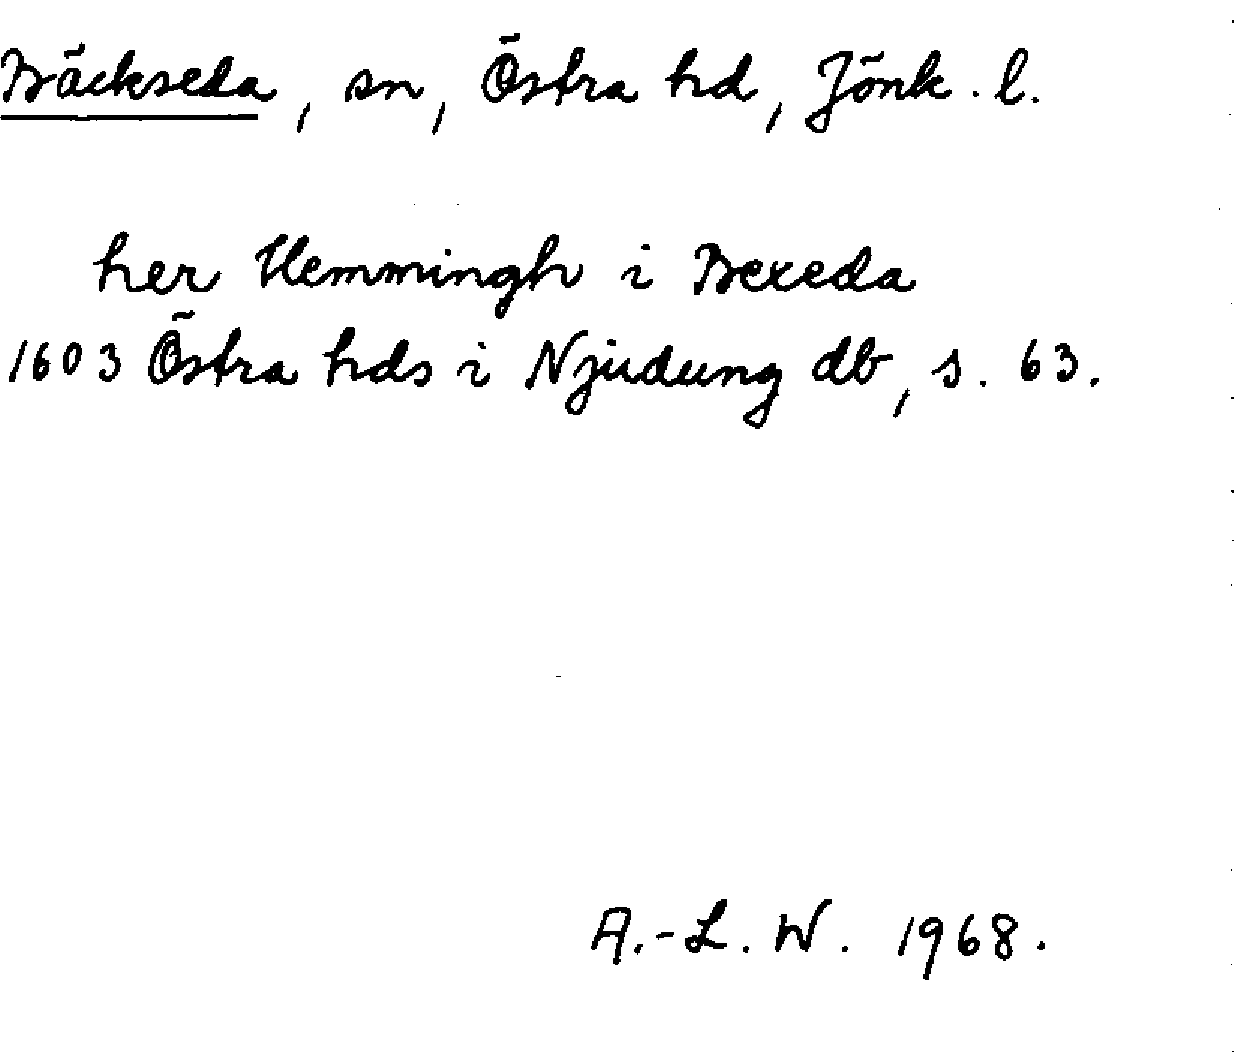 Bäckseda, sn, Östra hd, Jönk. l.
her Hemmingh i Bexeda
1603 Östra hds i Njudung db, s. 63.
A.-L. W. 1968.